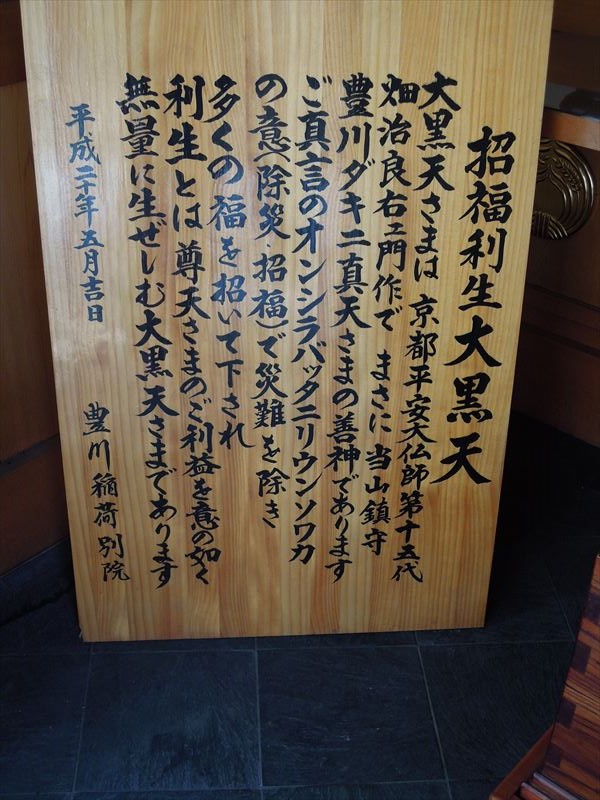 招福利生大黒天
大黒天さまは 京都平安大仏師第十五代
畑治良右ェ門作で まさに 当山鎮守
豊川ダキニ真天さまの善神であります
ご真言のオンシラバッタニリウンソワカ
の意(除災・招福)で災難を除き
多くの福を招いて下され
利生とは尊天さまのご利益を意の如く
無量に生ぜしむ大黒天さまであります
平成二十年五月吉日
豊川稲荷別院